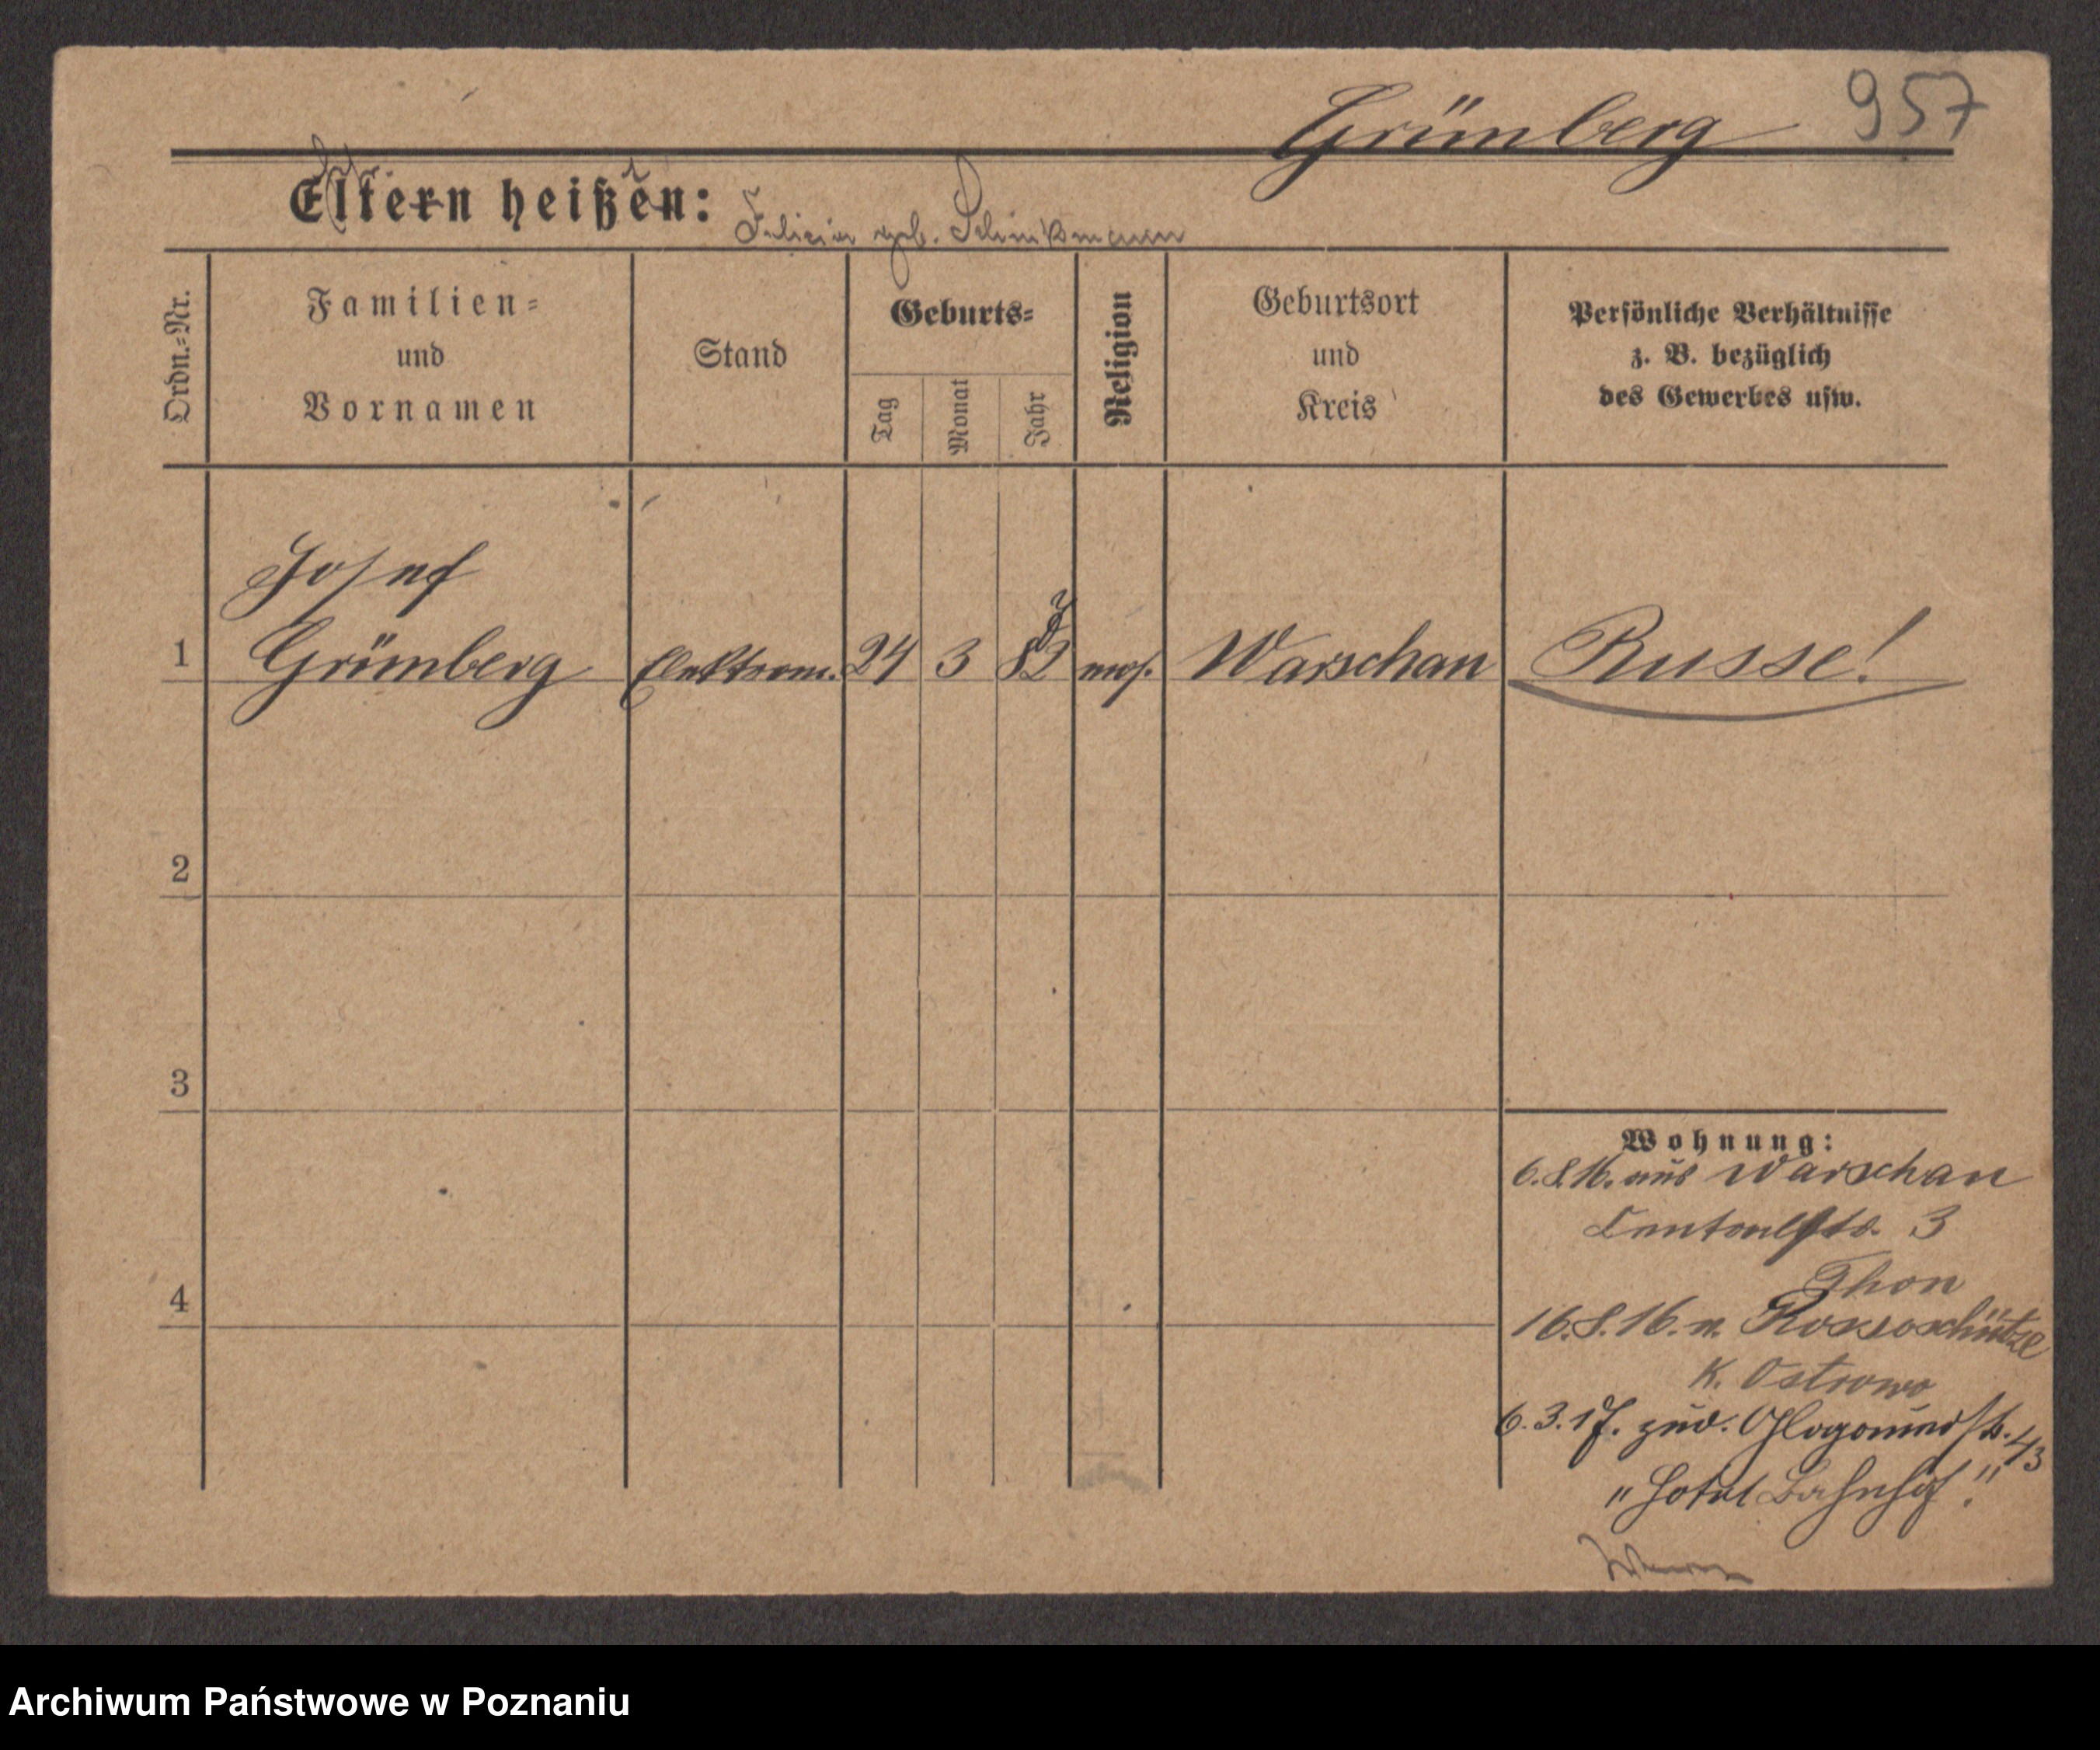 957
Grünberg
Eltern heißen:
Felicia geb. Schinkmann
Ordn.-Nr.
Familien-
und
Vornamen
Stand
Geburts-
Tag
Monat
Jahr
Religion
Geburtsort
und
Kreis
Persönliche Verhältnisse
z. B. bezüglich
des Gewerbes usw.
Josef
1 Grünberg Elektrom. 24 3 82 mos. Warschau Russe!
2
3
Wohnung:
6.8.16. aus Warschau
3
Thon
4
16.8.16. n. Rossoschütze
K. Ostrowo
6.3.17. zud. Glogauerstr. 43
"Hotel Bahnhof."
Archiwum Państwowe w Poznaniu